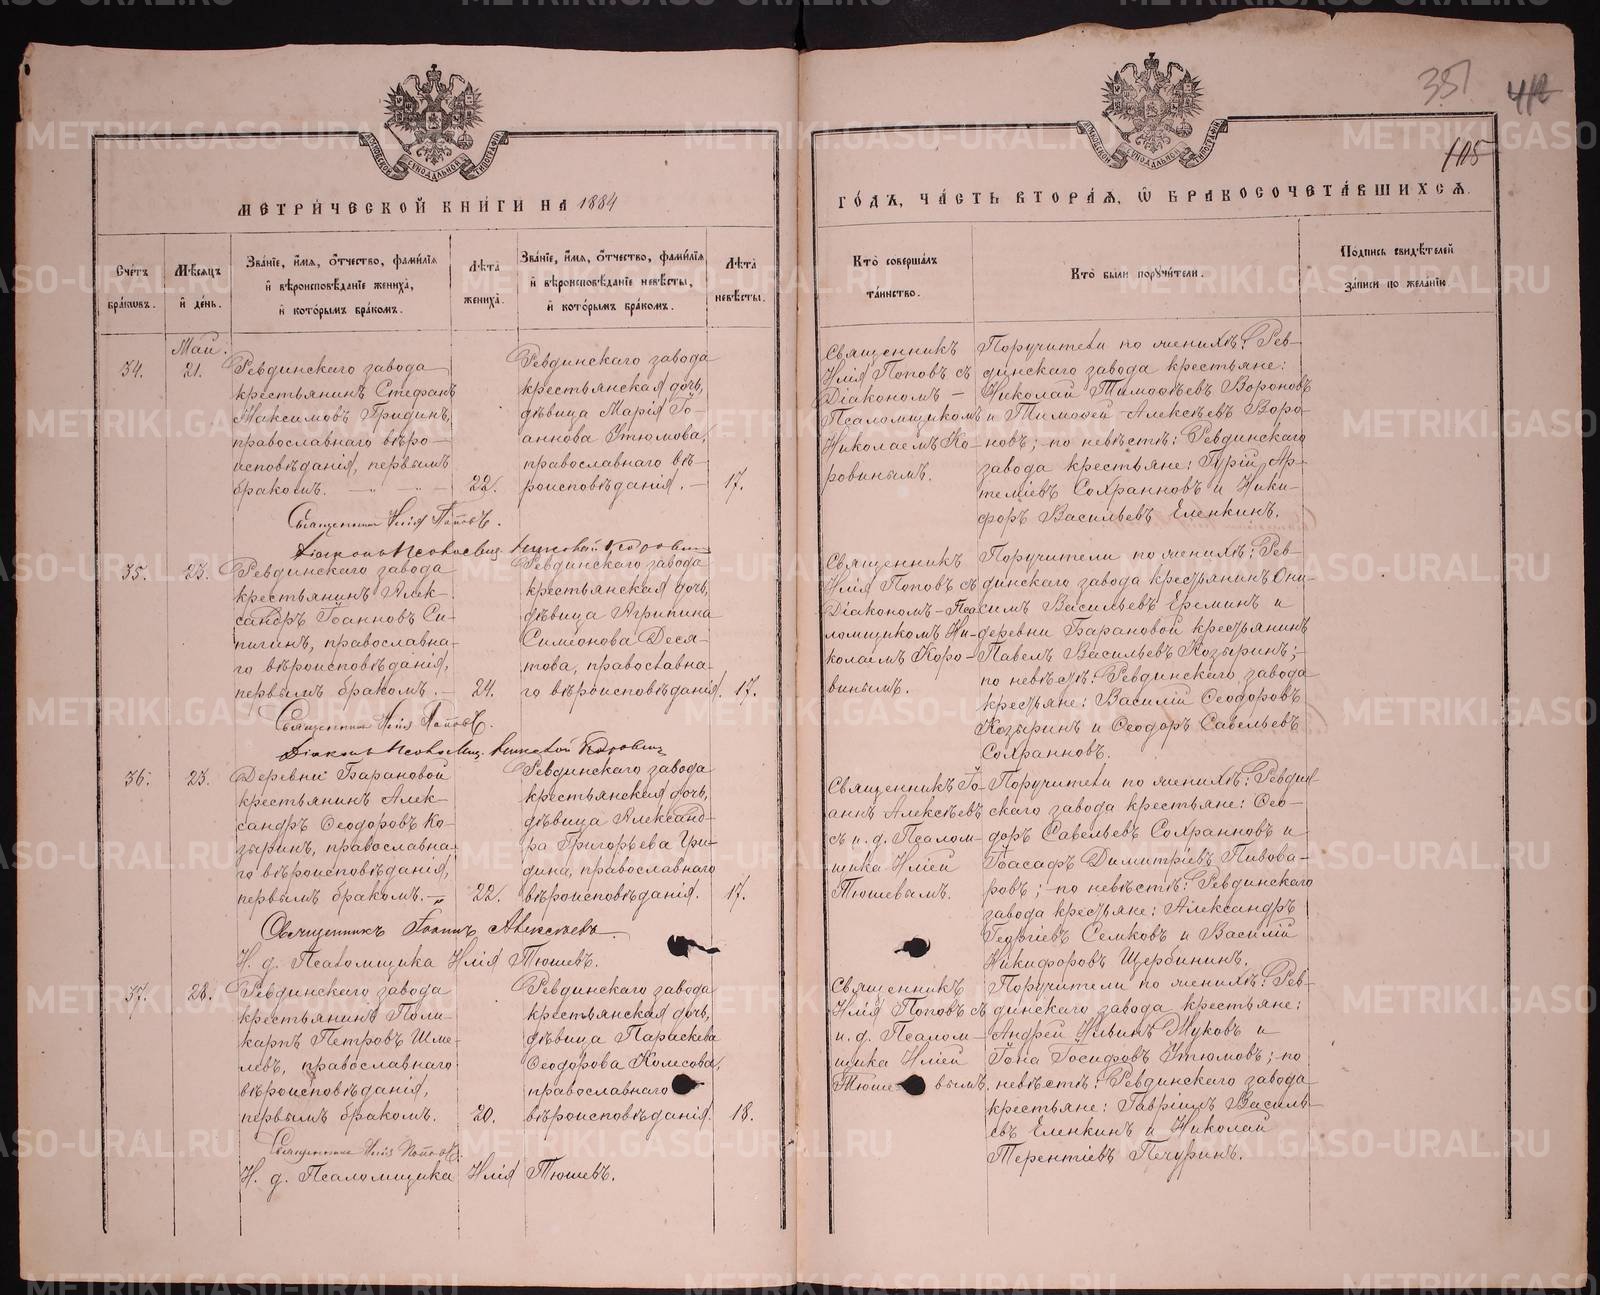 351
412
105
МОСКОВСКОЙ СѴНОДАЛЬНОЙ ТИПОГРАФІИ
МОСКОВСКОЙ СѴНОДАЛЬНОЙ ТИПОГРАФІИ
МЕТРИ́ЧЕСКОЙ КНИ́ГИ НА 1884
ГО́ДЪ, ЧА́СТЬ ВТОРА́Я, Ѽ БРАКОСОЧЕТА́ВШИХСЯ.
Сче́тъ бра́ковъ.
Мѣ́сяцъ и҆ де́нь.
Зва́нїе, и҆́мя, ѻ҆́тчество, фами́лїя
и҆ вѣроисповѣ́данїе жениха̀,
и҆ кото́рымъ бра́комъ.
Лѣ́та жениха̀.
Зва́нїе, и҆́мя, ѻ҆́тчество, фами́лїя
и҆ вѣроисповѣ́данїе невѣ́сты,
и҆ кото́рымъ бра́комъ.
Лѣ́та невѣ́сты.
Кто̀ соверша́лъ
та́инство.
Кто̀ бы́ли поручи́тели.
По́дпись свидѣ́телей
за́писи по жела́нїю.
Май.
34.
21.
Ревдинскаго завода
крестьянинъ Стефанъ
Максимовъ Гридинъ,
православнаго вѣро-
исповѣданія, первымъ
бракомъ. — „ — „ —
22.
Ревдинскаго завода
крестьянская дочь,
дѣвица Марія Іо-
аннова Утюмова,
православнаго вѣ-
роисповѣданія. —
17.
Священникъ
Илія Поповъ съ
Діакономъ —
Псаломщикомъ
Николаемъ Ко-
ровинымъ.
Поручители по женихѣ: Рев-
динскаго завода крестьяне:
Николай Тимоѳеевъ Вороновъ
и Тимоѳей Алексѣевъ Воро-
новъ; по невѣстѣ: Ревдинскаго
завода крестьяне: Гурій Ар-
теміевъ Сохранновъ и Ники-
форъ Васильевъ Еленкинъ.
Священникъ Илія Поповъ.
Діаконъ Псаломщ. Николай Коровинъ
35.
23.
Ревдинскаго завода
крестьянинъ Алек-
сандръ Іоанновъ Си-
пигинъ, православна-
го вѣроисповѣданія,
первымъ бракомъ. —
24.
Ревдинскаго завода
крестьянская дочь,
дѣвица Агрипина
Симеонова Деся-
това, православна-
го вѣроисповѣданія.
17.
Священникъ
Илія Поповъ съ
Діакономъ-Пса-
ломщикомъ Ни-
колаемъ Коро-
винымъ.
Поручители по женихѣ: Рев-
динскаго завода крестьянинъ Они-
симъ Васильевъ Ереминъ и
деревни Барановой крестьянинъ
Павелъ Васильевъ Козыринъ; —
по невѣстѣ: Ревдинскаго завода
крестьяне: Василій Ѳеодоровъ
Козыринъ и Ѳеодоръ Савельевъ
Сохранновъ.
Священникъ Илія Поповъ.
Діаконъ Псаломщ. Николай Коровинъ
36.
23.
Деревни Барановой
крестьянинъ Алек-
сандръ Ѳеодоровъ Ко-
зыринъ, православна-
го вѣроисповѣданія,
первымъ бракомъ. — „
22.
Ревдинскаго завода
крестьянская дочь,
дѣвица Александ-
ра Григорьева Гри-
дина, православнаго
вѣроисповѣданія.
17.
Священникъ Іо-
аннъ Алексѣевъ
съ и. д. Псалом-
щика Иліей
Тюшевымъ.
Поручители по женихѣ: Ревдин-
скаго завода крестьяне: Ѳео-
доръ Савельевъ Сохранновъ и
Іоасафъ Димитріевъ Пивова-
ровъ; — по невѣстѣ: Ревдинскаго
завода крестьяне: Александръ
Георгіевъ Семковъ и Василій
Никифоровъ Щербининъ.
Священникъ Іоаннъ Алексѣевъ
И. д. Псаломщика Илія Тюшевъ.
37.
28.
Ревдинскаго завода
крестьянинъ Поли-
карпъ Петровъ Шме-
левъ, православнаго
вѣроисповѣданія,
первымъ бракомъ.
20.
Ревдинскаго завода
крестьянская дочь,
дѣвица Параскева
Ѳеодорова Колесова,
православнаго
вѣроисповѣданія.
18.
Священникъ
Илія Поповъ съ
и. д. Псалом-
щика Иліей
Тюшевымъ.
Поручители по женихѣ: Рев-
динскаго завода крестьяне:
Андрей Ильинъ Жуковъ и
Іона Іосифовъ Утюмовъ; по
невѣстѣ: Ревдинскаго завода
крестьяне: Гавріилъ Василь-
евъ Еленкинъ и Николай
Терентіевъ Печуринъ.
Священникъ Илія Поповъ.
И. д. Псаломщика Илія Тюшевъ.
METRIKI.GASO-URAL.RU